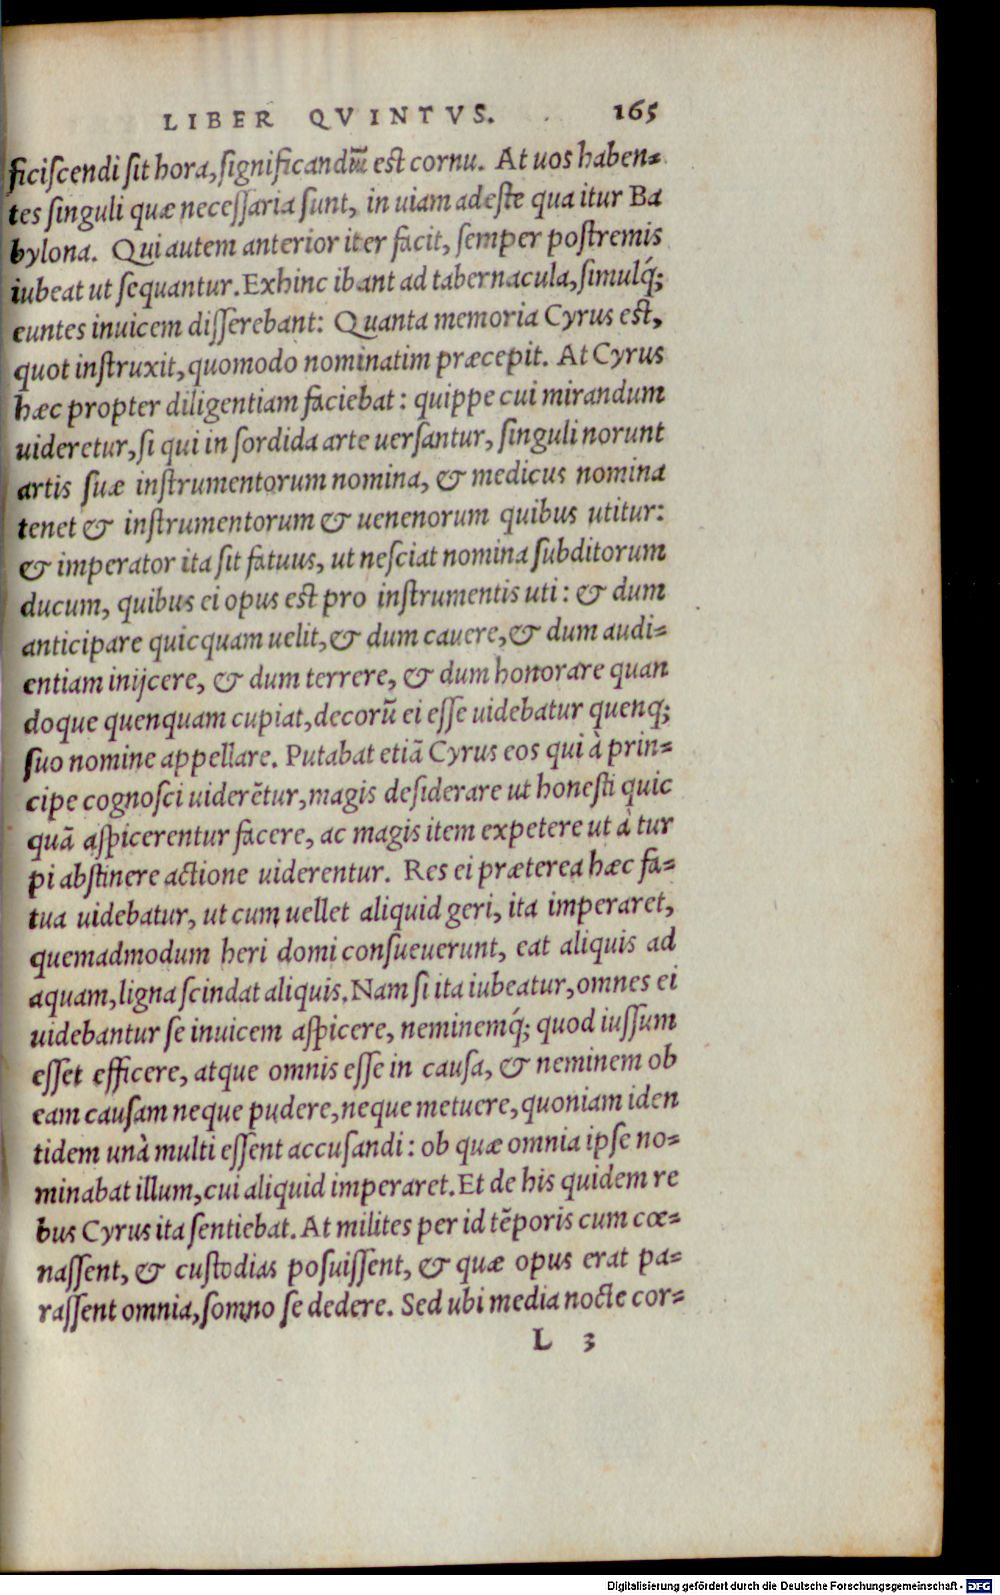 LIBER QVINTVS. 165
ficiscendi sit hora, significandū est cornu. At uos haben-
tes singuli quæ necessaria sunt, in uiam adeste qua itur Ba
bylona. Qui autem anterior iter facit, semper postremis
iubeat ut sequantur. Exhinc ibant ad tabernacula, simulq́;
euntes inuicem disserebant: Quanta memoria Cyrus est,
quot instruxit, quomodo nominatim præcepit. At Cyrus
hæc propter diligentiam faciebat: quippe cui mirandum
uideretur, si qui in sordida arte uersantur, singuli norunt
artis suæ instrumentorum nomina, & medicus nomina
tenet & instrumentorum & uenenorum quibus utitur:
& imperator ita sit fatuus, ut nesciat nomina subditorum
ducum, quibus ei opus est pro instrumentis uti: & dum
anticipare quicquam uelit, & dum cauere, & dum audi-
entiam inijcere, & dum terrere, & dum honorare quan
doque quenquam cupiat, decorū ei esse uidebatur quenq;
suo nomine appellare. Putabat etiā Cyrus eos qui à prin-
cipe cognosci uiderētur, magis desiderare ut honesti quic
quā aspicerentur facere, ac magis item expetere ut à tur
pi abstinere actione uiderentur. Res ei præterea hæc fa-
tua uidebatur, ut cum uellet aliquid geri, ita imperaret,
quemadmodum heri domi consueuerunt, eat aliquis ad
aquam, ligna scindat aliquis. Nam si ita iubeatur, omnes ei
uidebantur se inuicem aspicere, neminemq́; quod iussum
esset efficere, atque omnis esse in causa, & neminem ob
eam causam neque pudere, neque metuere, quoniam iden
tidem unà multi essent accusandi: ob quæ omnia ipse no-
minabat illum, cui aliquid imperaret. Et de his quidem re
bus Cyrus ita sentiebat. At milites per id tēporis cum cœ-
nassent, & custodias posuissent, & quæ opus erat pa-
rassent omnia, somno se dedere. Sed ubi media nocte cor-
L 3
Digitalisierung gefördert durch die Deutsche Forschungsgemeinschaft - DFG